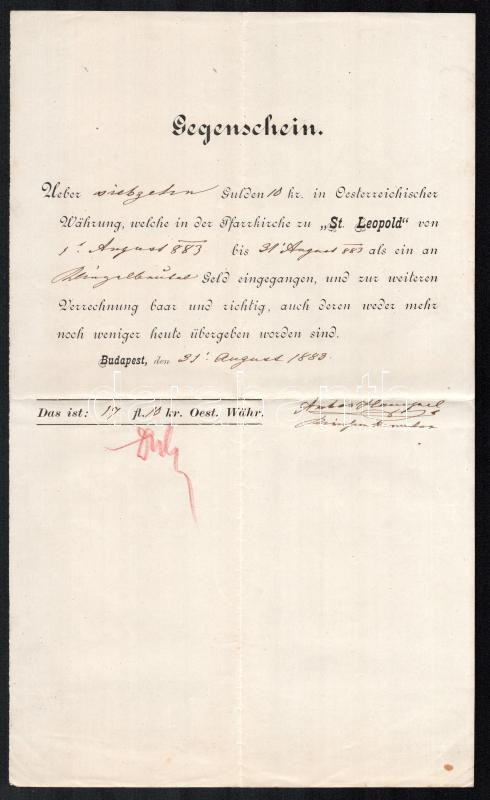 Gegenschein.
Ueber siebzehn Gulden 10 kr. in Oesterreichischer
Währung, welche in der Pfarrkirche zu „St. Leopold“ von
1. August 883 bis 31. August 883 als ein an
Klingelbeutel Geld eingegangen, und zur weiteren
Verrechnung baar und richtig, auch deren weder mehr
noch weniger heute übergeben worden sind.
Budapest, den 31. August 1883.
Das ist: 17 fl. 10 kr. Oest. Währ.